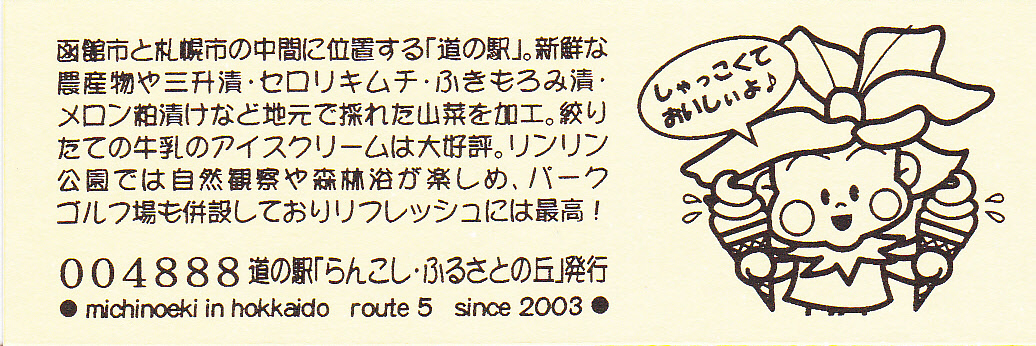 函館市と札幌市の中間に位置する「道の駅」。新鮮な
農産物や三升漬・セロリキムチ・ふきもろみ漬・
メロン粕漬けなど地元で採れた山菜を加工。絞り
たての牛乳のアイスクリームは大好評。リンリン
公園では自然観察や森林浴が楽しめ、パーク
ゴルフ場も併設しておりリフレッシュには最高！
004888道の駅「らんこし・ふるさとの丘」発行
● michinoeki in hokkaido route 5 since 2003 ●
しゃっこくて
おいしぃよ♪